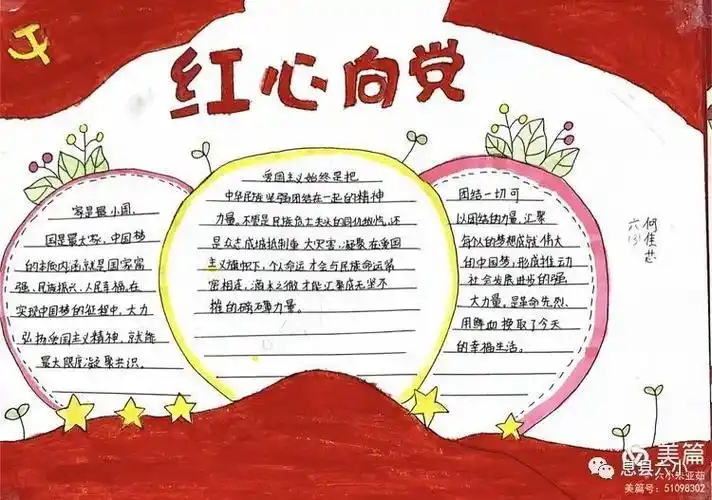 红心向党
家是最小国,
国是最大家,中国梦
的本质内涵就是国家富
强、民族振兴、人民幸福,在
实现中国梦的征程中,大力
弘扬爱国主义精神,就能
最大限度凝聚共识.
爱国主义始终是把
中华民族坚强团结在一起的精神
力量。不管是民族危亡关头的同仇敌忾,还
是众志成城抵制重大灾害,凝聚在爱国
主义旗帜下,个人命运才会与民族命运紧
密相连,滴水之微才能汇聚成无坚不
摧的磅礴力量.
团结一切可
以团结的力量,汇聚
每个人的梦想成就伟大
的中国梦,形成推动
社会发展进步的强
大力量,是革命先烈
用鲜血换取了今天
的幸福生活。
六(3)
何佳芯
美篇
息县六小
六小朱亚茹
美篇号:51098302